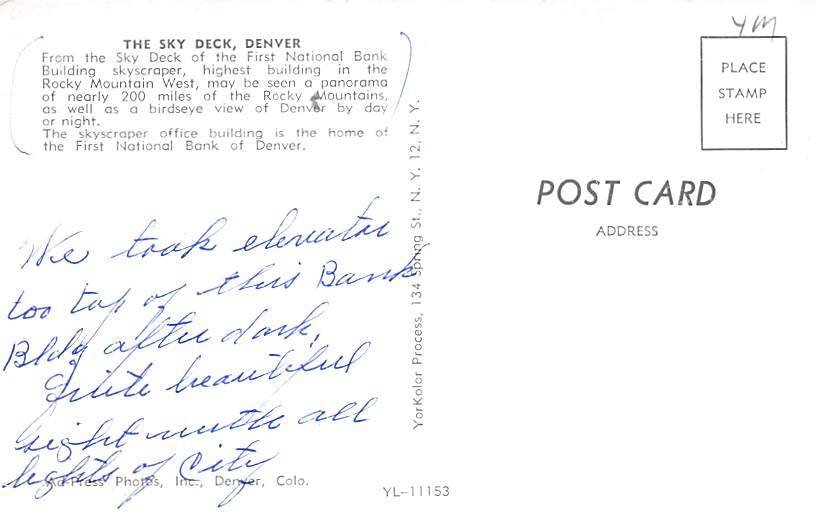 YM
THE SKY DECK, DENVER
From the Sky Deck of the First National Bank
Building skyscraper, highest building in the
Rocky Mountain West, may be seen a panorama
of nearly 200 miles of the Rocky Mountains,
as well as a birdseye view of Denver by day
or night.
The skyscraper office building is the home of
the First National Bank of Denver.
We took elevator
too top of this Bank
Bldg after dark,
Quite beautiful
sight with all
lights of City
Ad-Press Photos, Inc., Denver, Colo.
YorKolor Process, 134 Spring St., N. Y. 12, N. Y.
YL-11153
PLACE
STAMP
HERE
POST CARD
ADDRESS